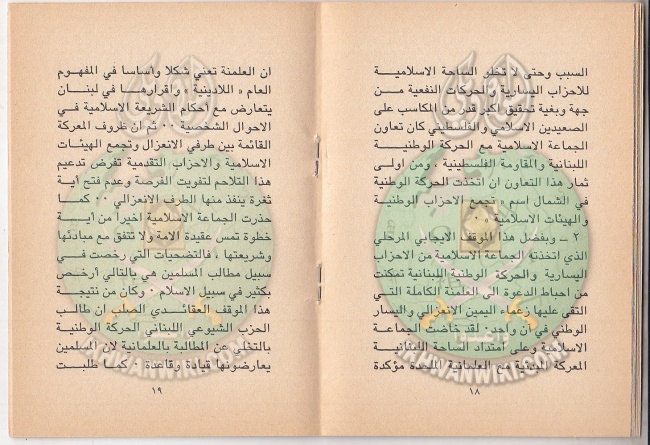 السبب وحتى لا تخلو الساحة الاسلامية
للاحزاب اليسارية والحركات النفعية من
جهة وبغية تحقيق أكبر قدر من المكاسب على
الصعيدين الاسلامي والفلسطيني كان تعاون
الجماعة الاسلامية مع الحركة الوطنية
اللبنانية والمقاومة الفلسطينية ، ومن اولى
ثمار هذا التعاون ان اتخذت الحركة الوطنية
في الشمال اسم « تجمع الاحزاب الوطنية
والهيئات الاسلامية » ٠
٢ ــ وبفضل هذا الموقف الايجابي المرحلي
الذي اتخذته الجماعة الاسلامية من الاحزاب
اليسارية والحركة الوطنية اللبنانية تمكنت
من احباط الدعوة الى العلمنة الكاملة التي
التقى عليها زعماء اليمين الانعزالي واليسار
الوطني في آن واحد ٠ لقد خاضت الجماعة
الاسلامية على امتداد الساحة اللبنانية
المعركة المبدئية مع العلمانية الملحدة مؤكدة
١٨
ان العلمنة تعني شكلا وأساسا في المفهوم
العام « اللادينية » واقرارها في لبنان
يتعارض مع أحكام الشريعة الاسلامية في
الاحوال الشخصية ٠٠ ثم ان ظروف المعركة
القائمة بين طرفي الانعزال وتجمع الهيئات
الاسلامية والاحزاب التقدمية تفرض تدعيم
هذا التلاحم لتفويت الفرصة وعدم فتح أية
ثغرة ينفذ منها الطرف الانعزالي ٠٠ كما
حذرت الجماعة الاسلامية اخيرا من أية
خطوة تمس عقيدة الامة ولا تتفق مع مبادئها
وشريعتها ، فالتضحيات التي رخصت في
سبيل مطالب المسلمين هي بالتالي أرخص
بكثير في سبيل الاسلام ٠ وكان من نتيجة
هذا الموقف العقائدي الصلب ان طالب
الحزب الشيوعي اللبناني الحركة الوطنية
بالتخلي عن المطالبة بالعلمانية لان المسلمين
يعارضونها قيادة وقاعدة ٠ كما طلبت
١٩